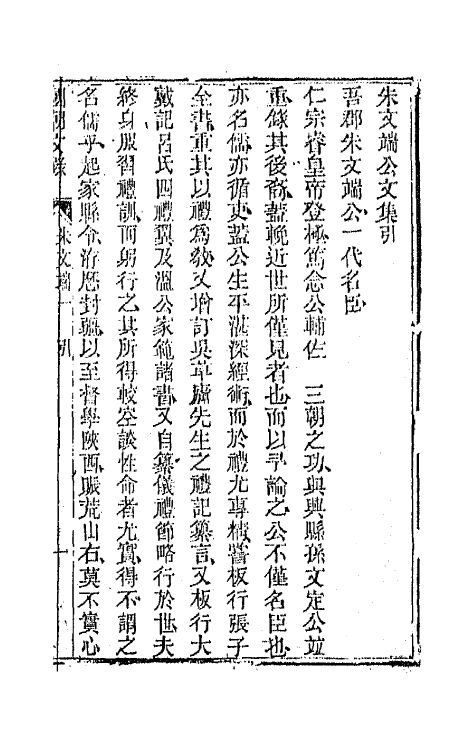 朱文端公文集引
吾郡朱文端公一代名臣
仁宗睿皇帝登極篤念公輔佐 三朝之功與興縣孫文定公並
重錄其後裔蓋輓近世所僅見者也而以予論之公不僅名臣也
亦名儒亦循吏蓋公生平湛深經術而於禮尤專精嘗板行張子
全書重其以禮爲敎又增訂吳草廬先生之禮記纂言又板行大
戴記呂氏四禮翼及溫公家範諸書又自纂儀禮節略行於世夫
終身服習禮訓而躬行之其所得較空談性命者尤實得不謂之
名儒乎起家縣令洊歷封疆以至督學陝西賑荒山右莫不實心
國朝文錄 朱文端一 引 一